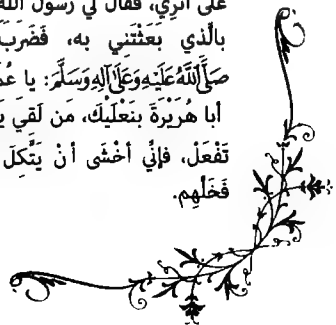 على أثري، فقال لي رسول الله
بالَّذي بَعَثْتَنِي به، فَضَرَبَ
صَلَّى اللَّهُ عَلَيْهِ وَعَلَى آلِهِ وَسَلَّمَ: يا عُمَ
أبا هُرَيْرَةَ بنَعْلَيْكَ، مَن لَقِيَ يَ
تَفْعَلْ، فإنِّي أخْشَى أنْ يَتَّكِلَ
فَخَلِّهِم.